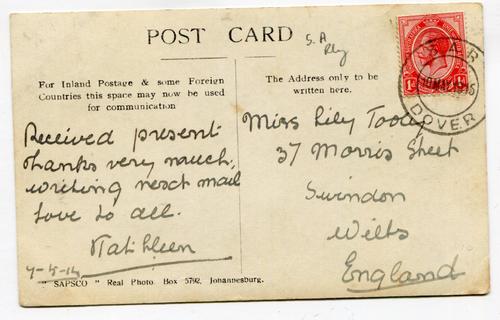 POST CARD
S.A
Rly
S.A.R
10 MAY 1915
DOVER
1d
For Inland Postage & some Foreign
Countries this space may now be used
for communication
The Address only to be
written here.
Received present
thanks very much,
writing next mail
love to all.
Kathleen
Miss Lily
37 Morris Street
Swindon
Wilts
England
"SAPSCO" Real Photo. Box 5792, Johannesburg.